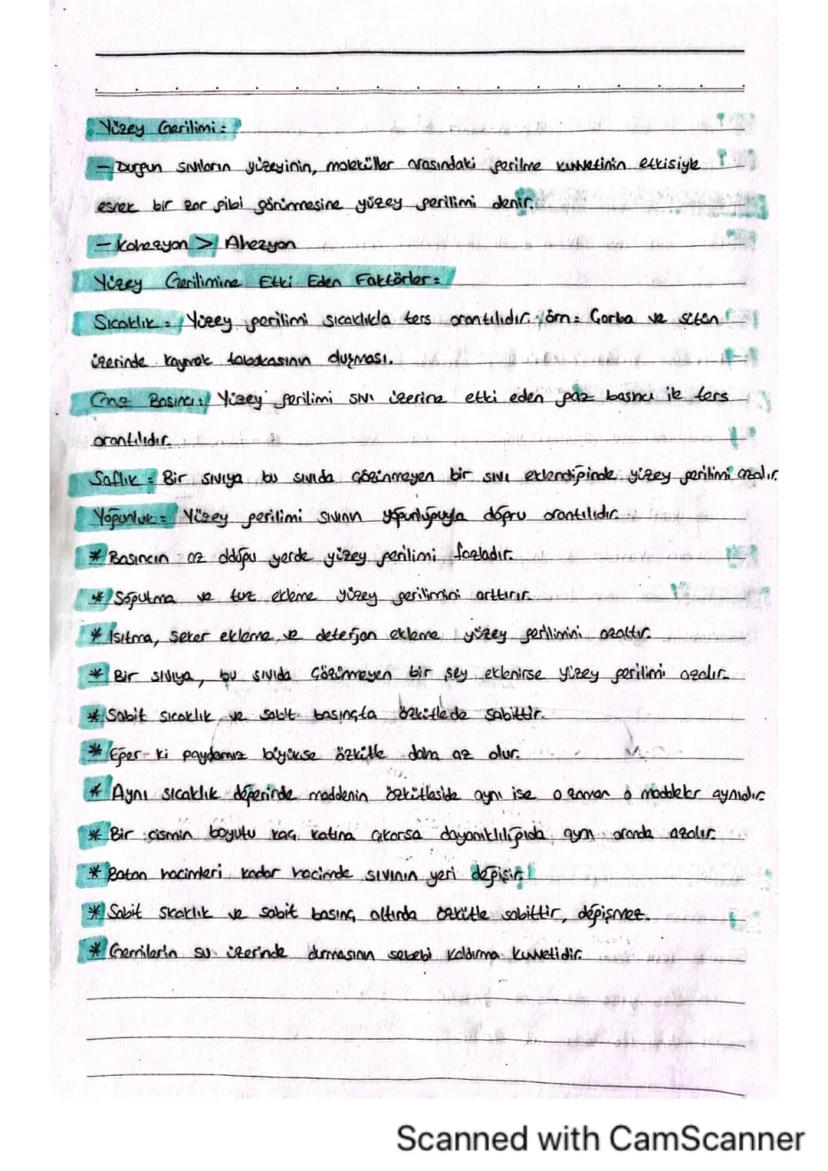 Yüzey Gerilimi:
- Durgun sıvıların yüzeyinin, moleküller arasındaki gerilme kuvvetinin etkisiyle
esnek bir zar gibi görünmesine yüzey gerilimi denir.
- Kohezyon > Ahezyon
Yüzey Gerilimine Etki Eden Faktörler:
Sıcaklık: Yüzey gerilimi sıcaklıkla ters orantılıdır. örn: Çorba ve sütün
üzerinde kaymak tabakasının oluşması.
Gaz Basıncı: Yüzey gerilimi sıvı üzerine etki eden gaz basıncı ile ters
orantılıdır.
Saflık: Bir sıvıya bu sıvıda çözünmeyen bir sıvı eklendiğinde yüzey gerilimi azalır.
Yoğunluk: Yüzey gerilimi sıvının yoğunluğuyla doğru orantılıdır.
* Basıncın az olduğu yerde yüzey gerilimi fazladır.
* Soğutma ve tuz ekleme yüzey gerilimini arttırır.
* Isıtma, şeker ekleme ve deterjan ekleme yüzey gerilimini azaltır.
* Bir sıvıya, bu sıvıda çözünmeyen bir şey eklenirse yüzey gerilimi azalır.
* Sabit sıcaklık ve sabit basınçta özkütlede sabittir.
* Eğer ki paydamız büyükse özkütle daha az olur.
* Aynı sıcaklık değerinde maddenin özkütleside aynı ise o zaman o maddeler aynıdır.
* Bir cismin boyutu kaç katına çıkarsa dayanıklılığıda aynı oranda azalır.
* Batan hacimleri kadar hacimde sıvının yeri değişir.
* Sabit sıcaklık ve sabit basınç altında özkütle sabittir, değişmez.
* Gemilerin su üzerinde durmasının sebebi kaldırma kuvvetidir.
Scanned with CamScanner